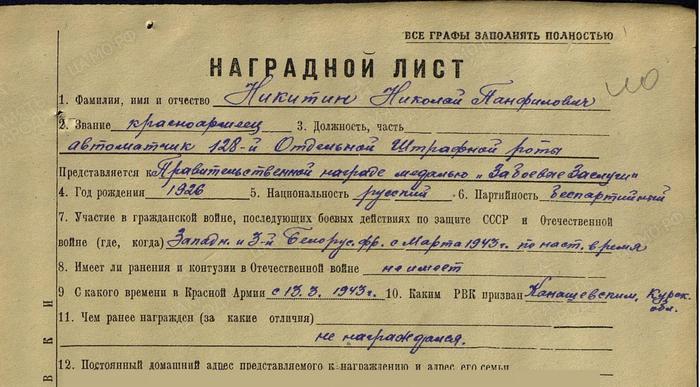 ВСЕ ГРАФЫ ЗАПОЛНЯТЬ ПОЛНОСТЬЮ
НАГРАДНОЙ ЛИСТ
1. Фамилия, имя и отчество Никитин Николай Панфилович
2. Звание красноармеец 3. Должность, часть
автоматчик 128-й Отдельной Штрафной роты
Представляется к Правительственной награде медалью „За Боевые Заслуги"
4. Год рождения 1926 5. Национальность русский 6. Партийность Беспартийный
7. Участие в гражданской войне, последующих боевых действиях по защите СССР и Отечественной
войне (где, когда) Западн. и 3-й Белорус. фр. с Марта 1943 г. по наст. время
8. Имеет ли ранения и контузии в Отечественной войне не имеет
9 С какого времени в Красной Армии с 13.3. 1943 г. 10. Каким РВК призван Конашевским, Курск. обл.
11. Чем ранее награжден (за какие отличия)
не награждался.
12. Постоянный домашний адрес представляемого к награждению и адрес его семьи
В К И
ЦАМО.РФ